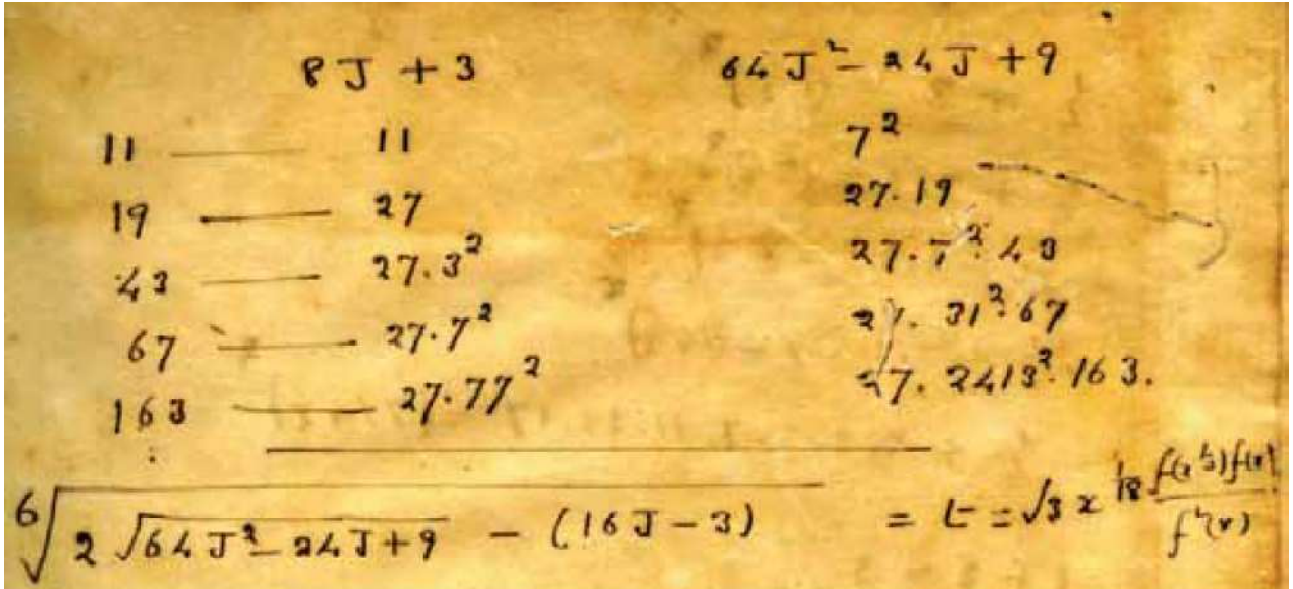 8J + 3 64J² − 24J + 9
11 — 11 7²
19 — 27 27·19
43 — 27·3² 27·7²·43
67 — 27·7² 27·31²·67
163 — 27·77² 27·2413²·163.
⁶√(2√(64J² − 24J + 9) − (16J − 3)) = t = √3 x^(1/18) f(x^(1/3)) f(x) / f²(x)